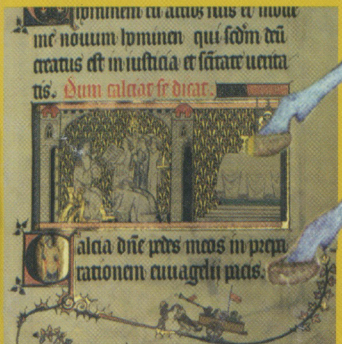 hominem cū actibꝫ suis et induē
me nouum hominem qui scdm deū
creatus est in iusticia et sc̄itate uerita
tis. Dum calciat se dicat.
Calcia dn̄e pedes meos in prepa
rationem euuagelii pacis.